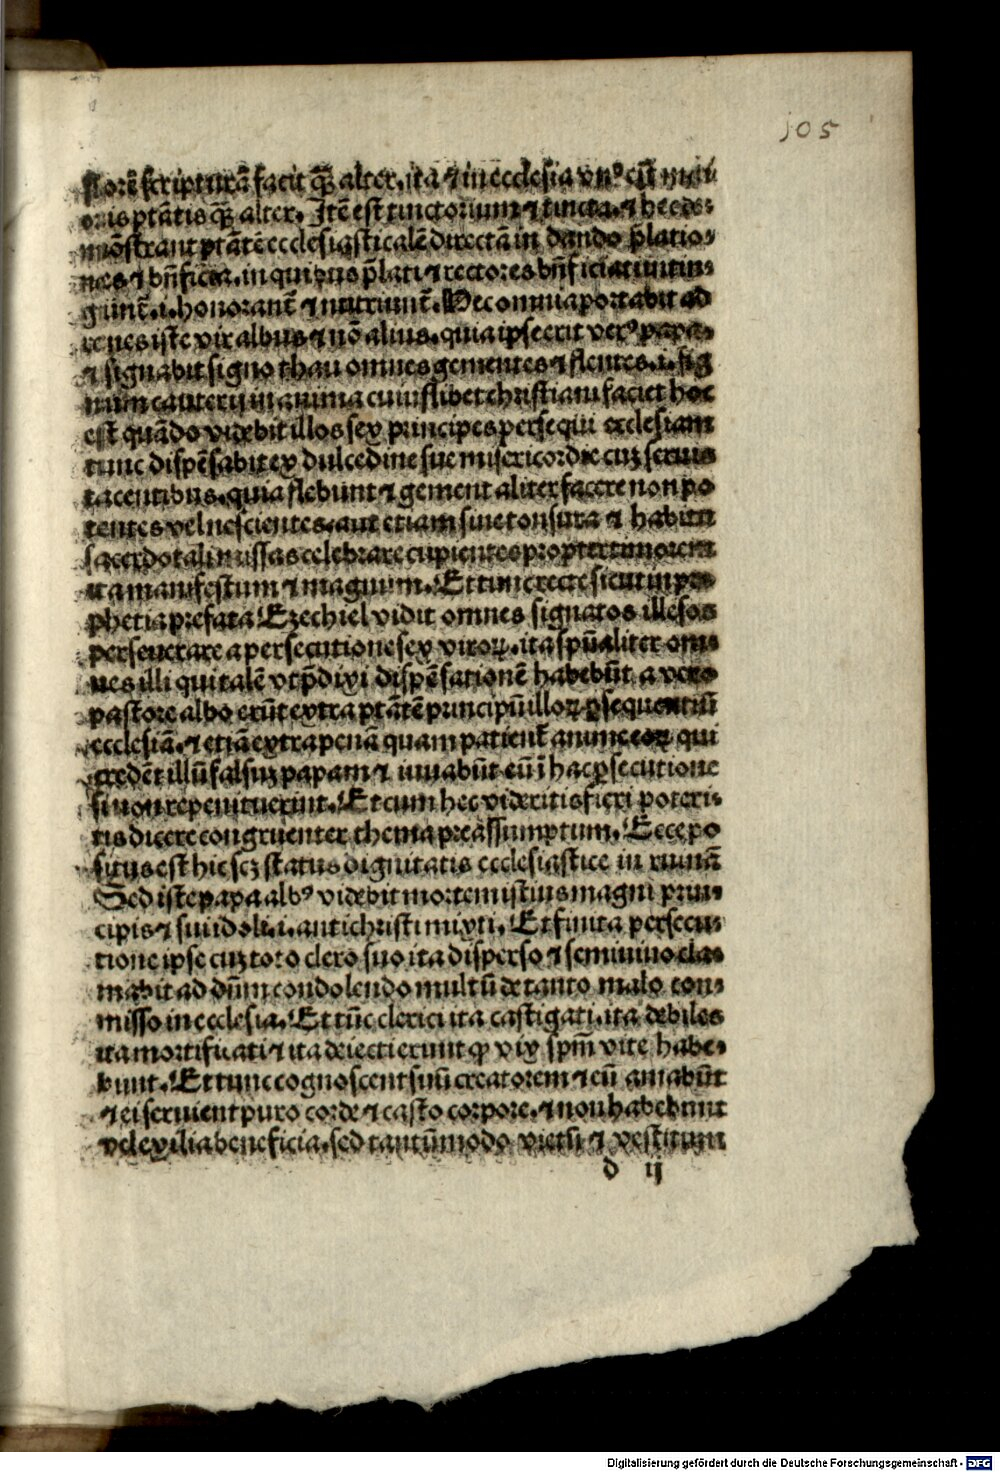 105
scripturā facit q̄ȝ alter. ita ⁊ in ecclesia vnꝰ est
oris ptātis q̄ȝ alter. Itē est tinctorium ⁊ tincta. ⁊ hec de⸗
mōstrant ptātē ecclesiasticalē directā in dando p̄latio⸗
nes ⁊ bn̄ficia. in quibus p̄lati ⁊ rectores bn̄ficiati intin⸗
gunt̄. i. honorant̄ ⁊ nutriunt̄. Hec omnia portabit ad
renes iste vir albus ⁊ nō alius. quia ipse erit verꝰ papa.
⁊ signabit signo thau omnes gementes ⁊ flentes. i. sig
num cauterij in anima cuiuslibet christiani faciet hoc
est quādo videbit illos sex principes persequi ecclesiam
tunc dispēsabit ex dulcedine sue misericordie cuȝ seruis
tacentibus. quia flebunt ⁊ gement aliter facere non po
tentes vel nescientes. aut etiam sine tonsura ⁊ habitu
sacerdotali missas celebrare cupientes propter timorem
ita manifestum ⁊ magnum. Et tunc recte sicut in pro⸗
phetia prefata Ezechiel vidit omnes signatos illesos
perseuerare a persecutione sex viroꝝ. ita spūaliter om⸗
nes illi qui talē vt p̄dixi dispēsationē habebūt a vero
pastore albo erūt extra ptātē principū illoꝝ ꝑsequentiū
ecclesiā. ⁊ etiā extra penā quam patient̄ anime eoꝝ qui
credēt illū falsuȝ papam ⁊ iuuabūt eū ī hac ꝑsecutione
si non repenituerint. Et cum hec videritis fieri poteri⸗
tis dicere congruenter thema preassumptum. Ecce po
situs est hic scȝ status dignitatis ecclesiastice in ruinā
Sed iste papa albꝰ videbit mortem istius magni prin⸗
cipis ⁊ sui idoli. i. antichristi mixti. Et finita persecu⸗
tione ipse cuȝ toto clero suo ita disperso ⁊ seminiuo cla⸗
mabit ad dūm condolendo multū de tanto malo com⸗
misso in ecclesia. Et tūc clerici ita castigati. ita debiles
ita mortificati ⁊ ita deiecti erunt ꝙ vix spm̄ vite habe⸗
bunt. Et tunc cognoscent suū creatorem ⁊ eū amabūt
⁊ ei seruient puro corde ⁊ casto corpore. ⁊ non habebunt
vel exilia beneficia. sed tantūmodo victū ⁊ vestitum
d ij
Digitalisierung gefördert durch die Deutsche Forschungsgemeinschaft - DFG